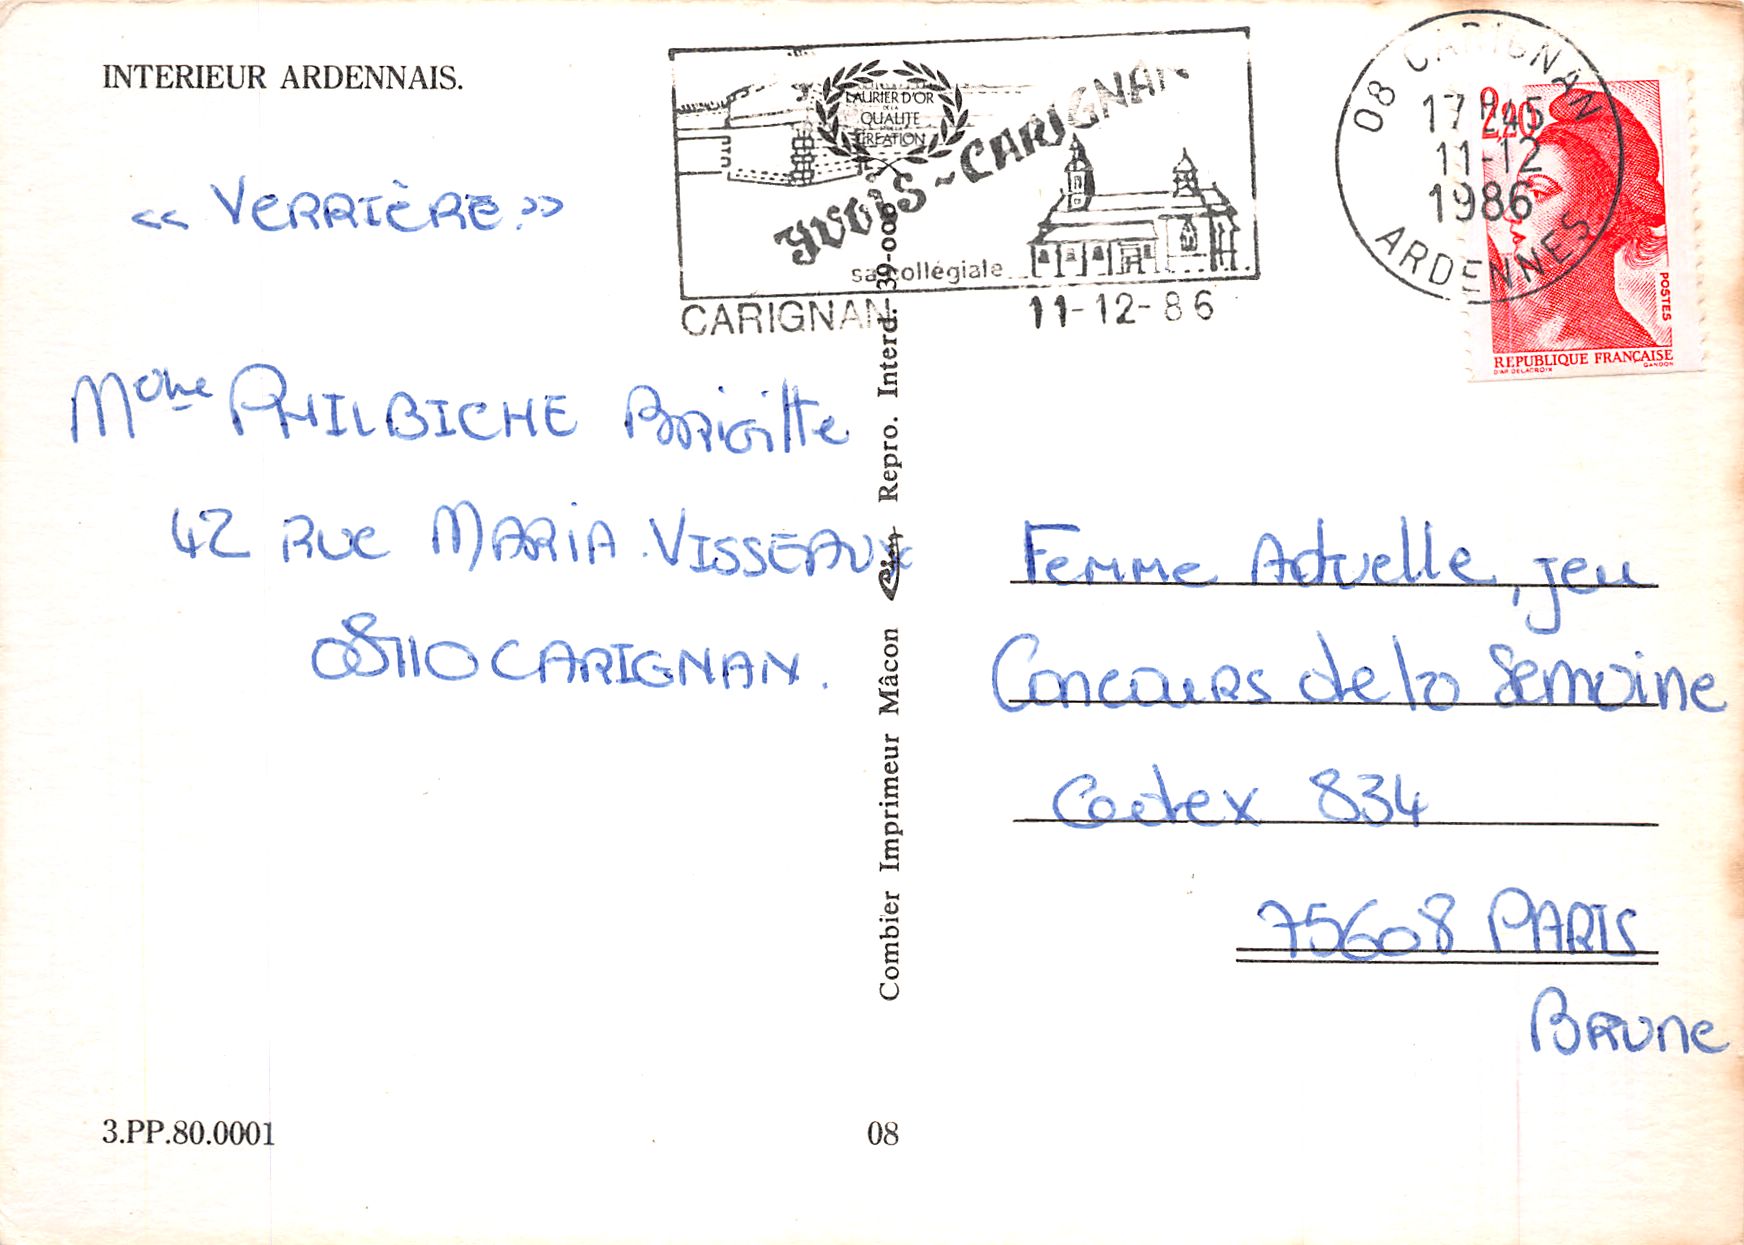 INTERIEUR ARDENNAIS.
« VERRIÈRE.»
Mme PHILBICHE Brigitte
42 RUE MARIA VISSEAUX
08110 CARIGNAN.
3.PP.80.0001
LAURIER D'OR
DE LA
QUALITE
CREATION
YVOIS-CARIGNAN
sa collégiale
CARIGNAN 11-12-86
Combier Imprimeur Mâcon Cim Repro. Interd. 39-000
08
08 CARIGNAN
17 H 45
11-12
1986
ARDENNES
2,20
POSTES
REPUBLIQUE FRANÇAISE
D'AP. DELACROIX GANDON
Femme Actuelle, jeu
Concours de la Semaine
Cedex 834
75608 PARIS
BRUNE